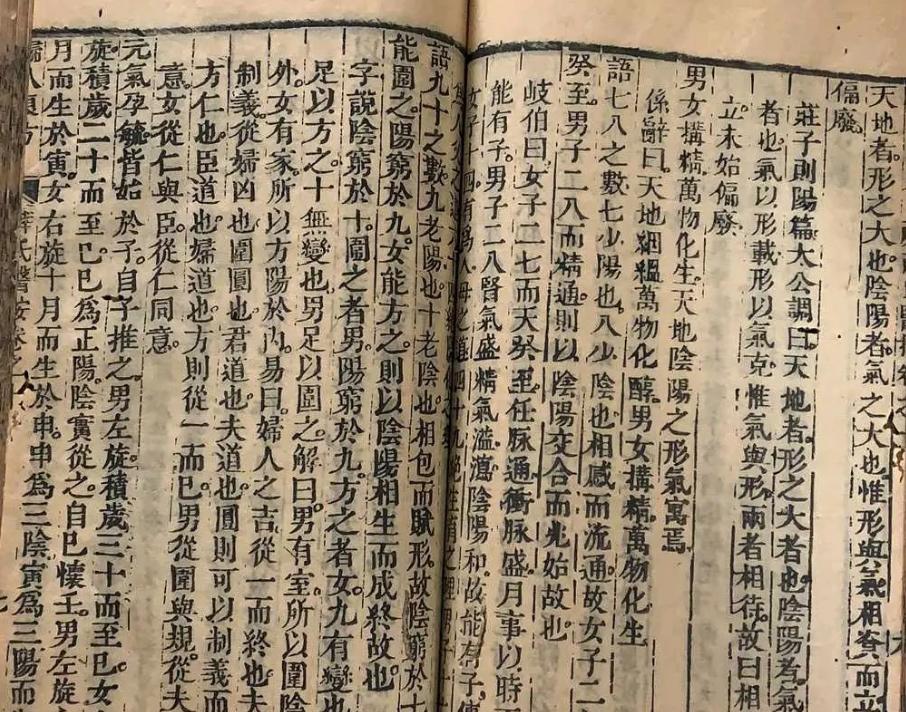 天地者。形之大也。陰陽者。氣之大也。惟形與氣。相資而立。
偏廢。
莊子則陽篇大公調曰。天地者。形之大者也。陰陽者。氣
者也。氣以形載。形以氣克。惟氣與形。兩者相待。故曰相
立。未始偏廢。
男女構精。萬物化生。天地陰陽之形氣寓焉。
係辭曰。天地絪縕。萬物化醇。男女構精。萬物化生。
語七八之數。七少陽也。八少陰也。相感而流通。故女子二
癸至。男子二八而精通。則以陰陽交合而兆始故也。
岐伯曰。女子二七而天癸至。任脉通。衝脉盛。月事以時
能有子。男子二八腎氣盛。精氣溢瀉。陰陽和。故能有子。
語九十之數。九老陽也。十老陰也。相包而賦形。故陰窮於十
能圍之。陽窮於九。女能方之。則以陰陽相生而成終故也。
字說。陰窮於十。圍之者男。陽窮於九。方之者女。九有變也
足以方之。十無變也。男足以圍之。解曰。男有室。所以圍陰
外。女有家。所以方陽於內。易曰。婦人之吉。從一而終也。夫
制義。從婦凶也。圍圓也。君道也。夫道也。圓則可以制義。而
方仁也。臣道也。婦道也。方則從一而已。男從圍與規從夫
意。女從仁與臣。從仁同意。
元氣孕毓。皆始於子。自子推之。男左旋。積歲三十而至巳。女
旋。積歲二十而至巳。巳為正陽。陰實從之。自巳懷壬。男左旋
月而生於寅。女右旋十月而生於申。申為三陰。寅為三陽。而